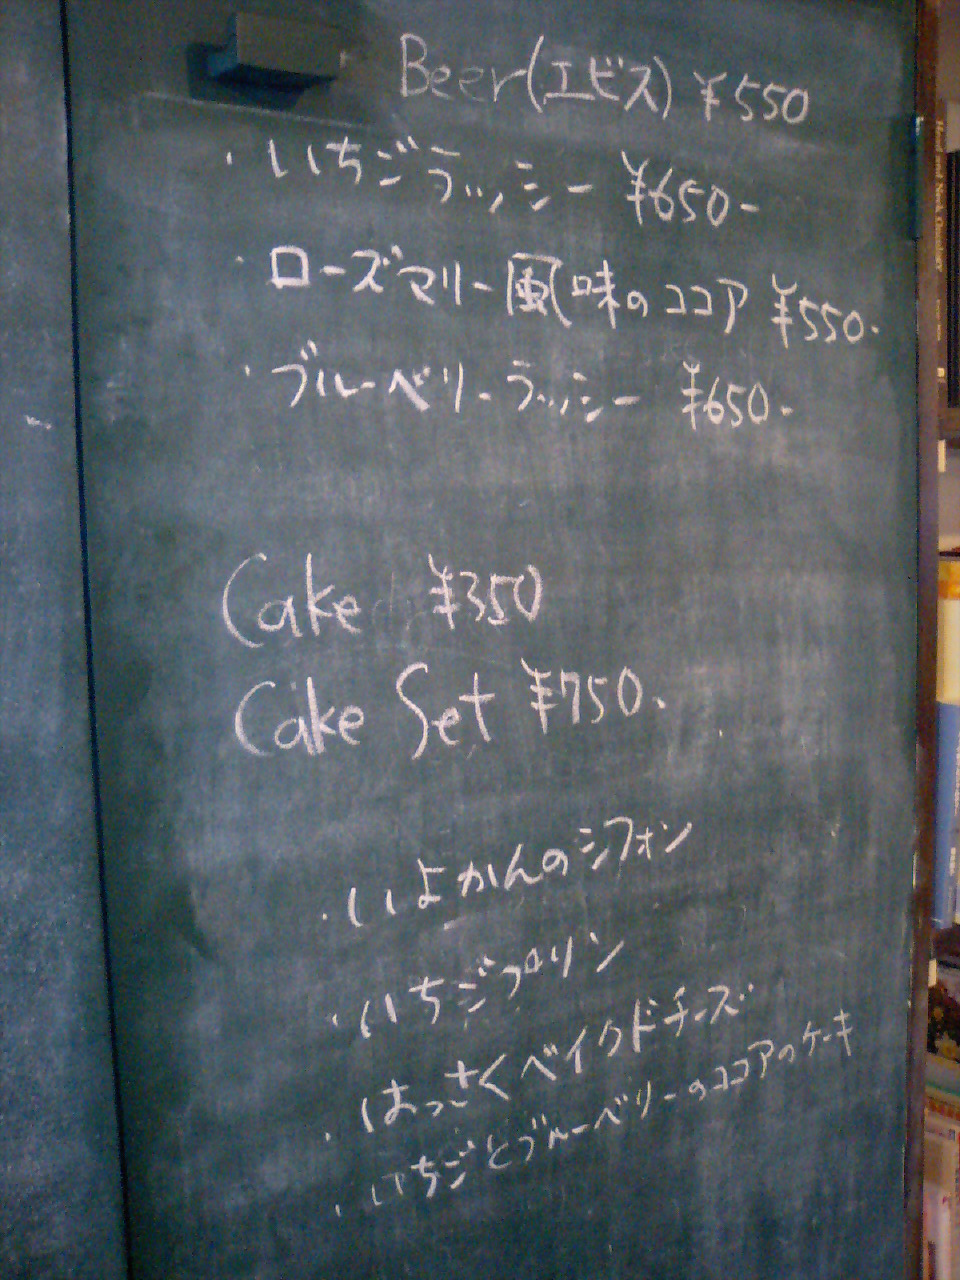 Beer(エビス) ¥550
・いちごラッシー ¥650-
・ローズマリー風味のココア ¥550-
・ブルーベリーラッシー ¥650-
Cake ¥350
Cake Set ¥750-
・いよかんのシフォン
・いちごプリン
・はっさくベイクドチーズ
・いちごとブルーベリーのココアのケーキ